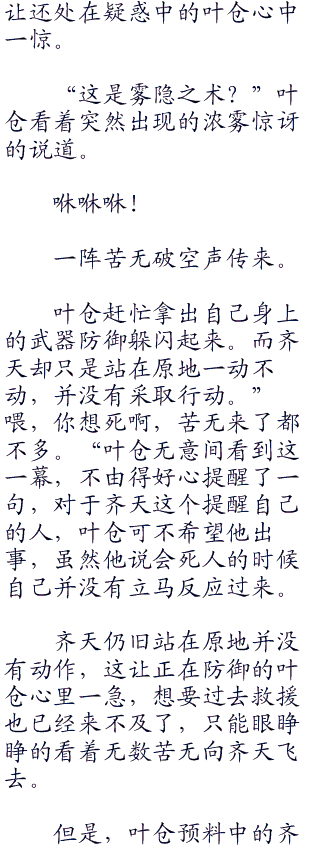 让还处在疑惑中的叶仓心中
一惊。
“这是雾隐之术？”叶
仓看着突然出现的浓雾惊讶
的说道。
咻咻咻！
一阵苦无破空声传来。
叶仓赶忙拿出自己身上
的武器防御躲闪起来。而齐
天却只是站在原地一动不
动，并没有采取行动。”
喂，你想死啊，苦无来了都
不多。“叶仓无意间看到这
一幕，不由得好心提醒了一
句，对于齐天这个提醒自己
的人，叶仓可不希望他出
事，虽然他说会死人的时候
自己并没有立马反应过来。
齐天仍旧站在原地并没
有动作，这让正在防御的叶
仓心里一急，想要过去救援
也已经来不及了，只能眼睁
睁的看着无数苦无向齐天飞
去。
但是，叶仓预料中的齐